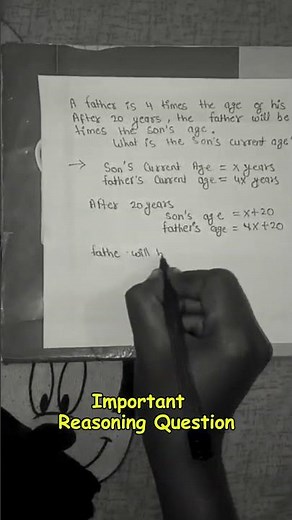 A father is 4 times the age of his
After 20 years, the father will be
times the son's age.
What is the son's current age?
→ Son's Current Age = x years
father's Current age = 4x years
After 20 years
son's age = x+20
father's age = 4x+20
fathe will b
Important
Reasoning Question